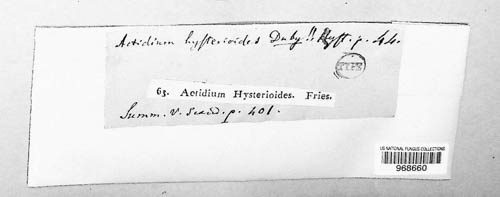 Actidium hysterioides Duby!! Hyst. p. 44.
63. Actidium Hysterioides. Fries.
Summ. v. Scand. p. 401.
US NATIONAL FUNGUS COLLECTIONS
968660